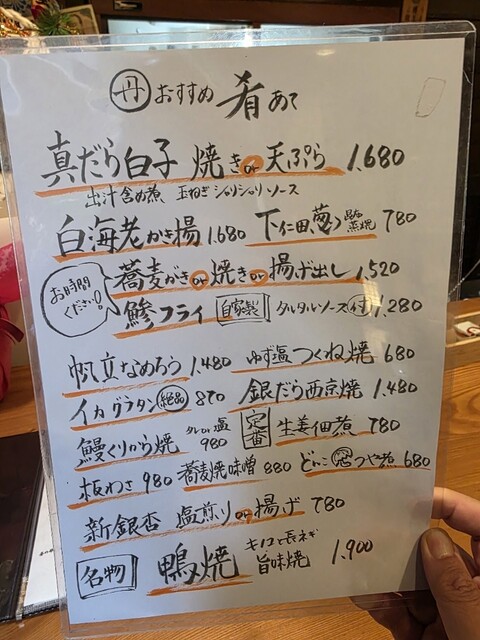 丹 おすすめ 肴 あて
真だら白子 焼き or 天ぷら 1,680
出汁含め煮 玉ねぎシャリシャリソース
白海老かき揚 1,680 下仁田葱 780
お時間ください!! 蕎麦がき or 焼き or 揚げ出し 1,520
鯵フライ 自家製 タルタルソース付 1,280
帆立なめろう 1,480 ゆず塩つくね焼 680
イカグラタン 絶品 870 銀だら西京焼 1,480
鰻くりから焼 タレor塩 980 定番 生姜佃煮 780
板わさ 980 蕎麦焼味噌 880 どんこ つや煮 680
新銀杏 塩煎り or 揚げ 780
名物 鴨焼 キノコと長ネギ 旨味焼 1,900